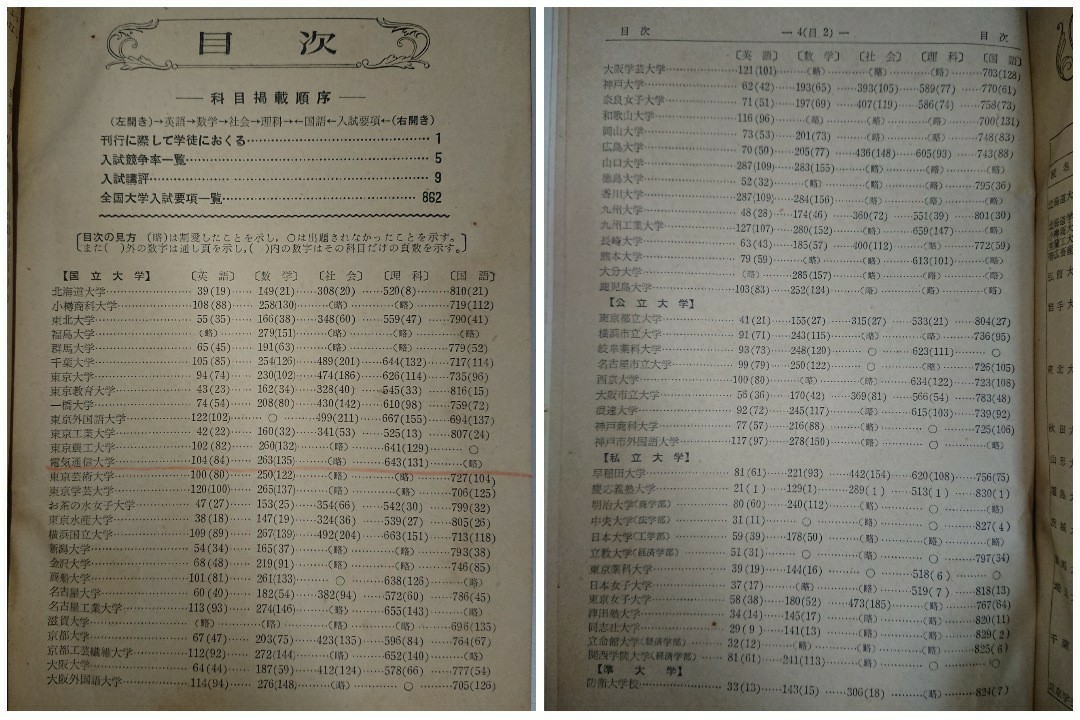 目次
― 科目掲載順序 ―
(左開き)→英語→数学→社会→理科→←国語←入試要項←(右開き)
刊行に際して学徒におくる……1
入試競争率一覧……5
入試講評……9
全国大学入試要項一覧……862
〔目次の見方 (略)は割愛したことを示し,○は出題されなかったことを示す。
また( )外の数字は通し頁を示し,( )内の数字はその科目だけの頁数を示す。〕
【国立大学】 〔英語〕 〔数学〕 〔社会〕 〔理科〕 〔国語〕
北海道大学……39(19)……149(21)……308(20)……520(8)……810(21)
小樽商科大学……108(88)……258(130)……(略)……(略)……719(112)
東北大学……55(35)……166(38)……348(60)……559(47)……790(41)
福島大学……(略)……279(151)……(略)……(略)……(略)
群馬大学……65(45)……191(63)……(略)……(略)……779(52)
千葉大学……105(85)……254(126)……489(201)……644(132)……717(114)
東京大学……94(74)……230(102)……474(186)……626(114)……735(96)
東京教育大学……43(23)……162(34)……328(40)……545(33)……816(15)
一橋大学……74(54)……208(80)……430(142)……610(98)……759(72)
東京外国語大学……122(102)……○……499(211)……667(155)……694(137)
東京工業大学……42(22)……160(32)……341(53)……525(13)……807(24)
東京農工大学……102(82)……260(132)……(略)……641(129)……○
電気通信大学……104(84)……263(135)……(略)……643(131)……(略)
東京芸術大学……100(80)……250(122)……(略)……(略)……727(104)
東京学芸大学……120(100)……265(137)……(略)……(略)……706(125)
お茶の水女子大学……47(27)……153(25)……354(66)……542(30)……799(32)
東京水産大学……38(18)……147(19)……324(36)……539(27)……805(26)
横浜国立大学……109(89)……267(139)……492(204)……663(151)……713(118)
新潟大学……54(34)……165(37)……(略)……(略)……793(38)
金沢大学……68(48)……219(91)……(略)……(略)……746(85)
商船大学……101(81)……261(133)……○……638(126)……(略)
名古屋大学……60(40)……182(54)……382(94)……572(60)……786(45)
名古屋工業大学……113(93)……274(146)……(略)……655(143)……(略)
滋賀大学……(略)……(略)……(略)……(略)……696(135)
京都大学……67(47)……203(75)……423(135)……596(84)……764(67)
京都工芸繊維大学……112(92)……272(144)……(略)……652(140)……(略)
大阪大学……64(44)……187(59)……412(124)……578(66)……777(54)
大阪外国語大学……114(94)……276(148)……(略)……○……705(126)
目次 ―4(目2)― 目次
〔英語〕 〔数学〕 〔社会〕 〔理科〕 〔国語〕
大阪学芸大学……121(101)……(略)……(略)……(略)……703(128)
神戸大学……62(42)……193(65)……393(105)……589(77)……770(61)
奈良女子大学……71(51)……197(69)……407(119)……586(74)……758(73)
和歌山大学……116(96)……(略)……(略)……(略)……700(131)
岡山大学……73(53)……201(73)……(略)……(略)……748(83)
広島大学……70(50)……205(77)……436(148)……605(93)……743(88)
山口大学……287(109)……283(155)……(略)……(略)……(略)
徳島大学……52(32)……(略)……(略)……(略)……795(36)
香川大学……287(109)……284(156)……(略)……(略)……(略)
九州大学……48(28)……174(46)……360(72)……551(39)……801(30)
九州工業大学……127(107)……280(152)……(略)……659(147)……(略)
長崎大学……63(43)……185(57)……400(112)……(略)……772(59)
熊本大学……79(59)……(略)……(略)……613(101)……(略)
大分大学……(略)……285(157)……(略)……(略)……(略)
鹿児島大学……103(83)……252(124)……(略)……(略)……(略)
【公立大学】
東京都立大学……41(21)……155(27)……315(27)……533(21)……804(27)
横浜市立大学……91(71)……243(115)……(略)……(略)……736(95)
岐阜薬科大学……93(73)……248(120)……○……623(111)……○
名古屋市立大学……99(79)……250(122)……○……(略)……726(105)
西京大学……100(80)……(略)……(略)……634(122)……723(108)
大阪市立大学……56(36)……170(42)……369(81)……566(54)……783(48)
浪速大学……92(72)……245(117)……(略)……615(103)……739(92)
神戸商科大学……77(57)……216(88)……(略)……○……725(106)
神戸市外国語大学……117(97)……278(150)……(略)……○……(略)
【私立大学】
早稲田大学……81(61)……221(93)……442(154)……620(108)……756(75)
慶応義塾大学……21(1)……129(1)……289(1)……513(1)……830(1)
明治大学(商学部)……80(60)……240(112)……(略)……○……(略)
中央大学(法学部)……31(11)……○……(略)……○……827(4)
日本大学(工学部)……59(39)……178(50)……(略)……(略)……(略)
立教大学(経済学部)……51(31)……○……(略)……○……797(34)
東京薬科大学……39(19)……144(16)……○……518(6)……○
日本女子大学……37(17)……(略)……(略)……519(7)……818(13)
東京女子大学……58(38)……180(52)……473(185)……(略)……767(64)
津田塾大学……34(14)……145(17)……(略)……(略)……820(11)
同志社大学……29(9)……141(13)……(略)……(略)……829(2)
立命館大学(経済学部)……32(12)……(略)……(略)……○……825(6)
関西学院大学(経済学部)……81(61)……241(113)……(略)……○……○
【準大学】
防衛大学校……33(13)……143(15)……306(18)……(略)……824(7)